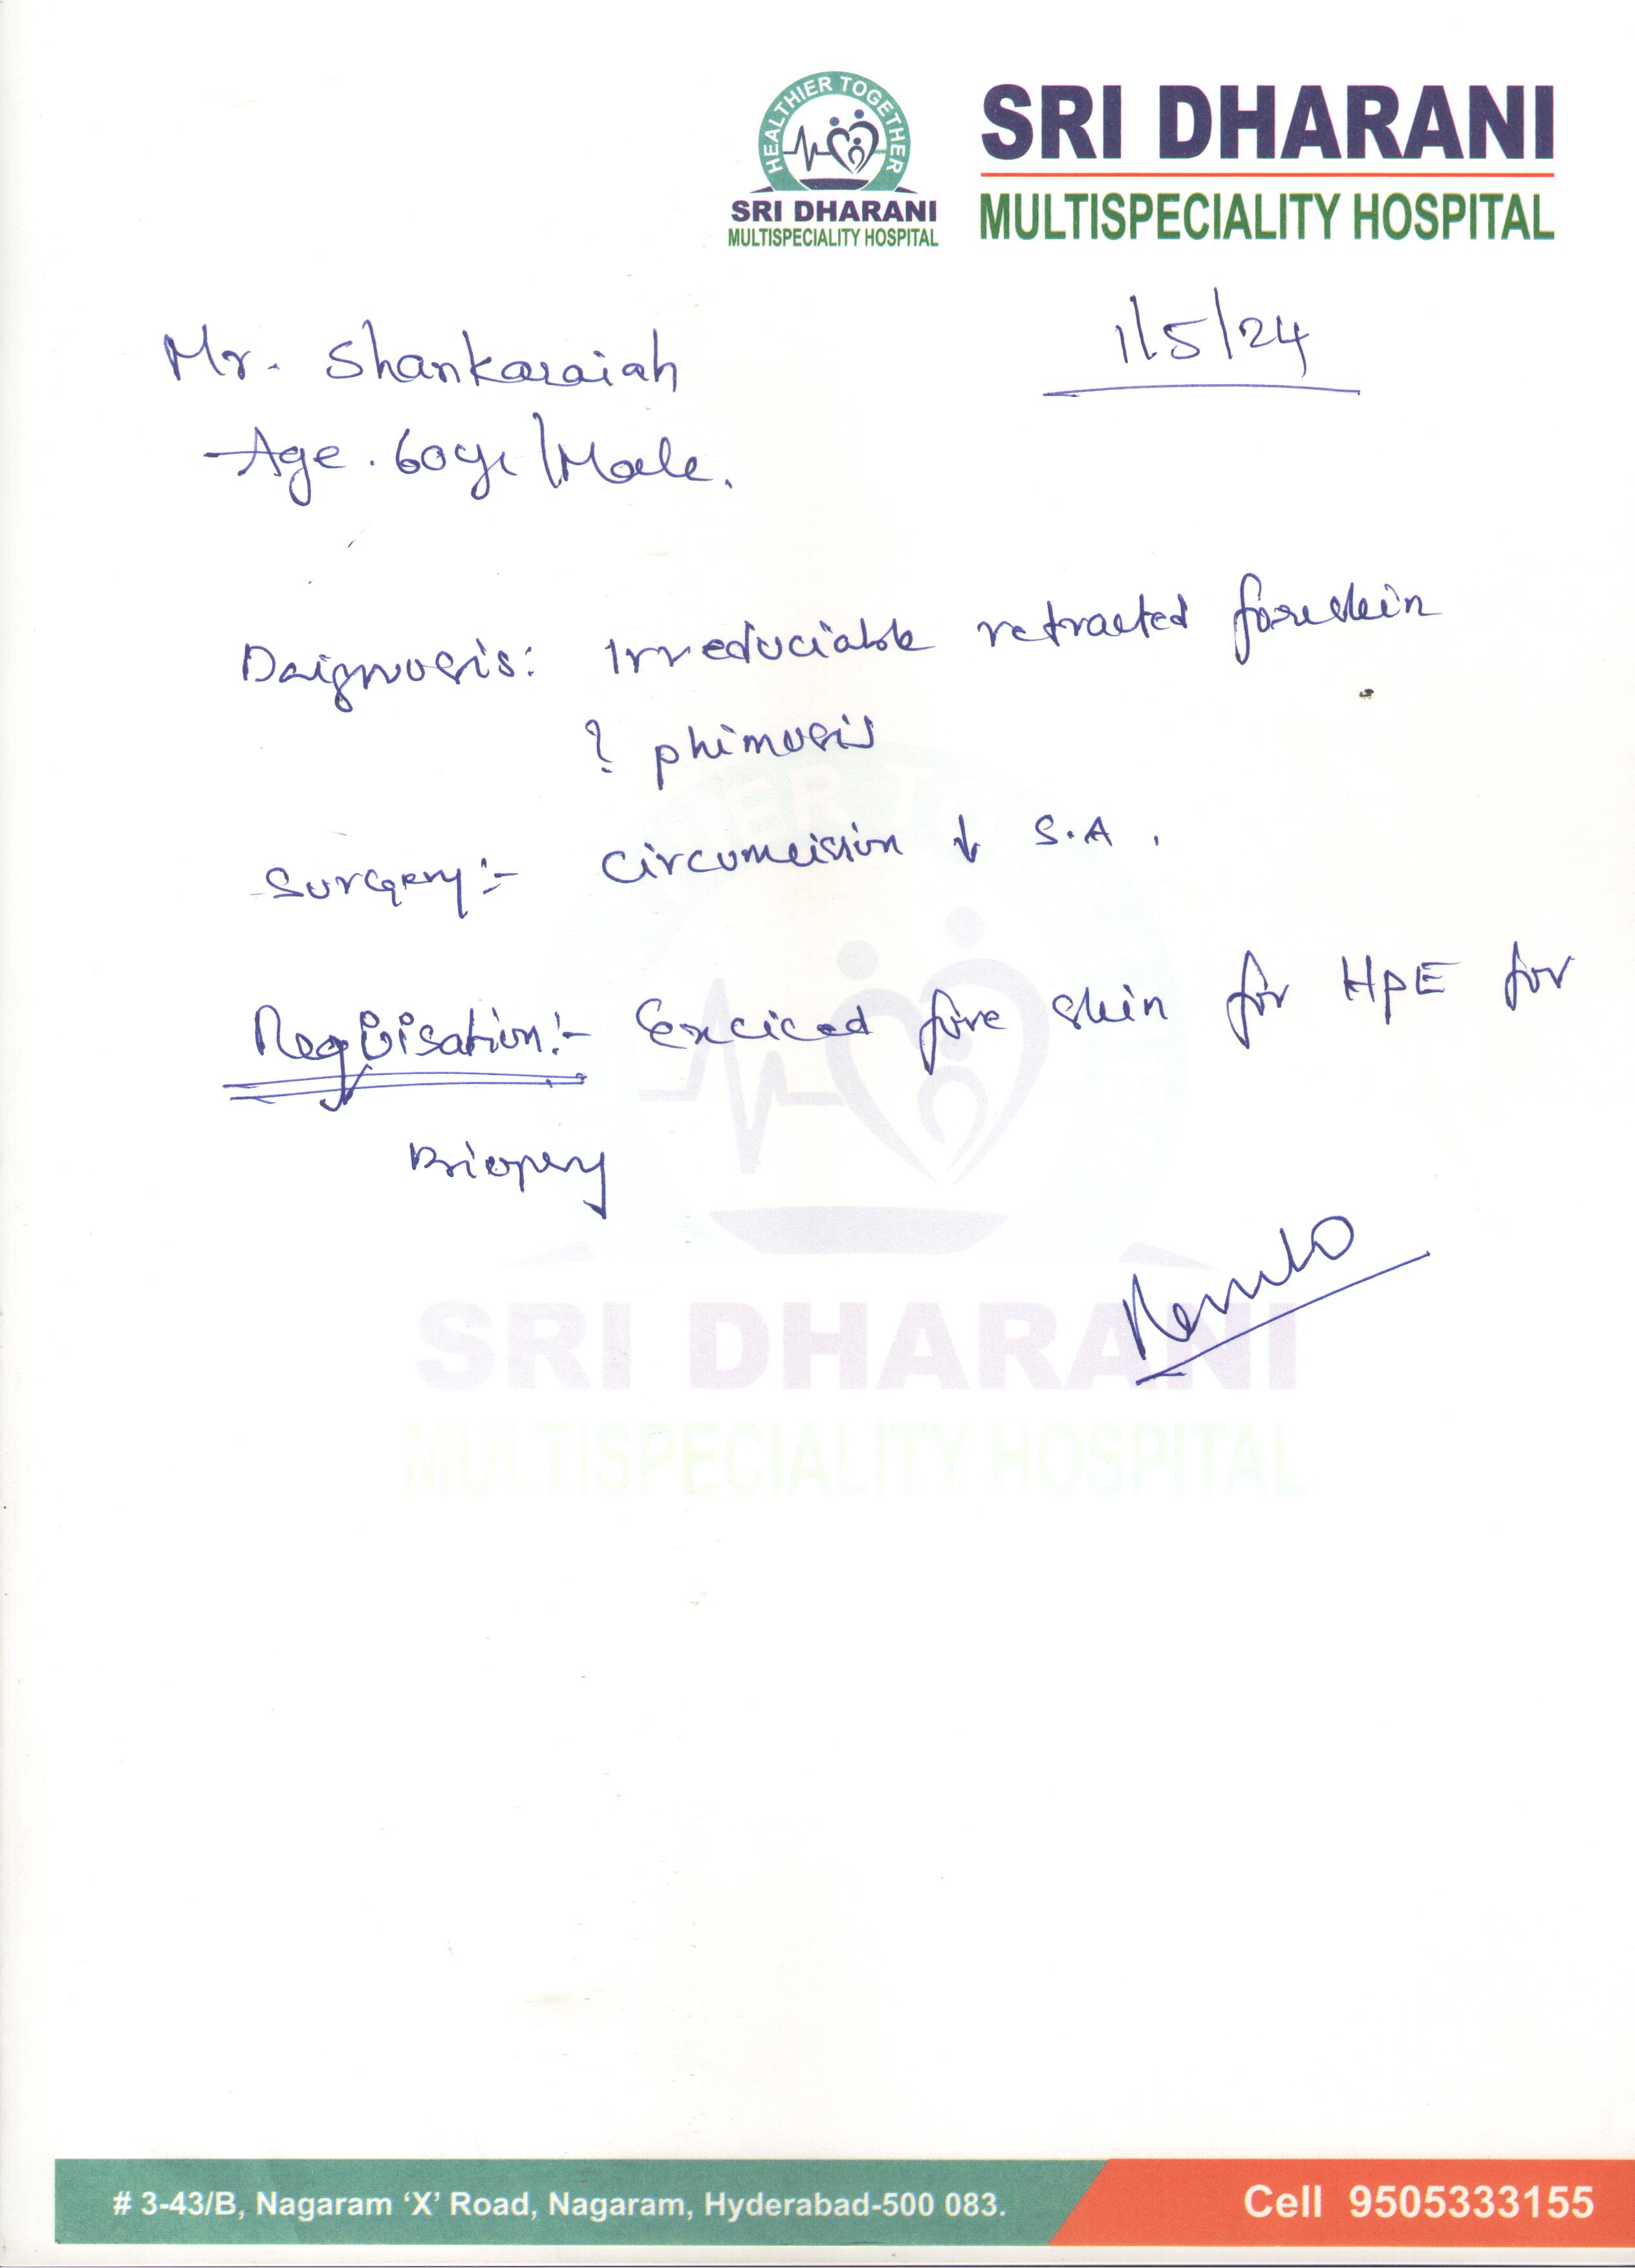 HEALTHIER TOGETHER
SRI DHARANI
MULTISPECIALITY HOSPITAL
SRI DHARANI
MULTISPECIALITY HOSPITAL
1/5/24
Mr. Shankaraiah
Age. 60yr/Male.
Daignosis: Irreduciable retracted foreskin
? phimosis
Surgery:- Circumcision ↓ S.A.
Requisation:- Exciced fore skin for HPE for
Biopsy
SRI DHARANI
MULTISPECIALITY HOSPITAL
# 3-43/B, Nagaram ‘X’ Road, Nagaram, Hyderabad-500 083.
Cell 9505333155